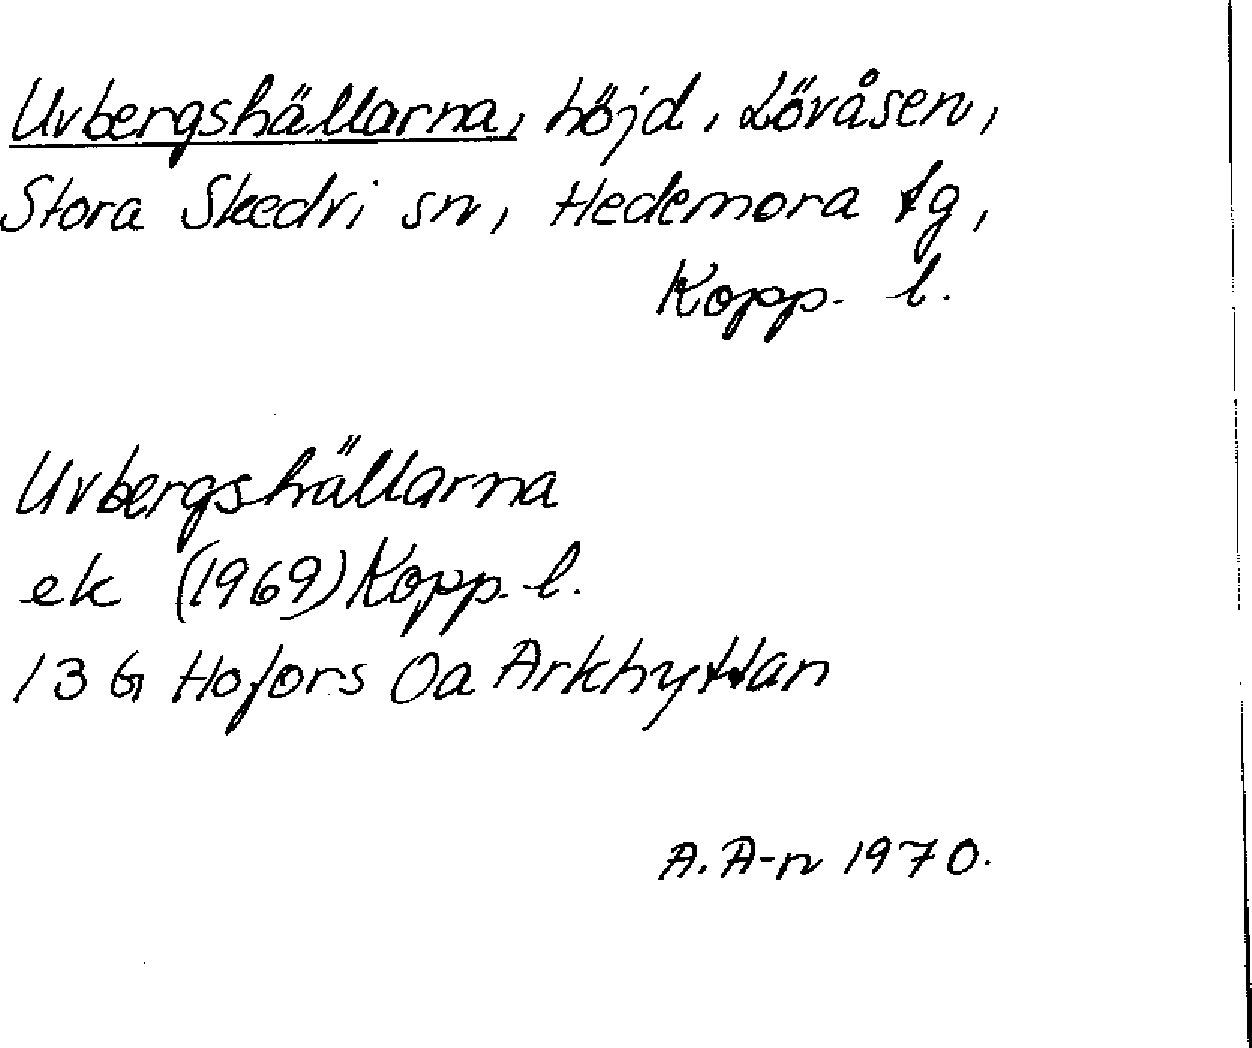 Uvbergshällarna, höjd, Lövåsen,
Stora Skedvi sn, Hedemora tg,
Kopp. l.
Uvbergshällarna
ek (1969) Kopp. l.
13 G Hofors 0a Arkhyttan
A. A-n 1970.